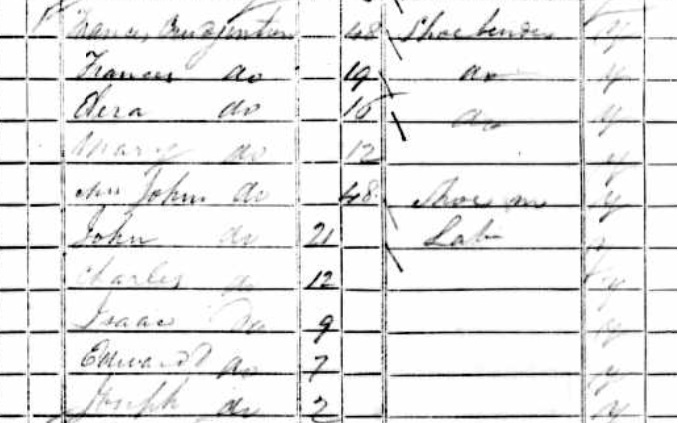 Frances 48 Shoebinder y
Frances do 19 do y
Elera do 16 do y
Mary do 12 y
Mrs John do 48 Shoe m y
John do 21 Lab
Charles do 12 y
Isaac do 9 y
Edward do 7 y
Joseph do 2 y